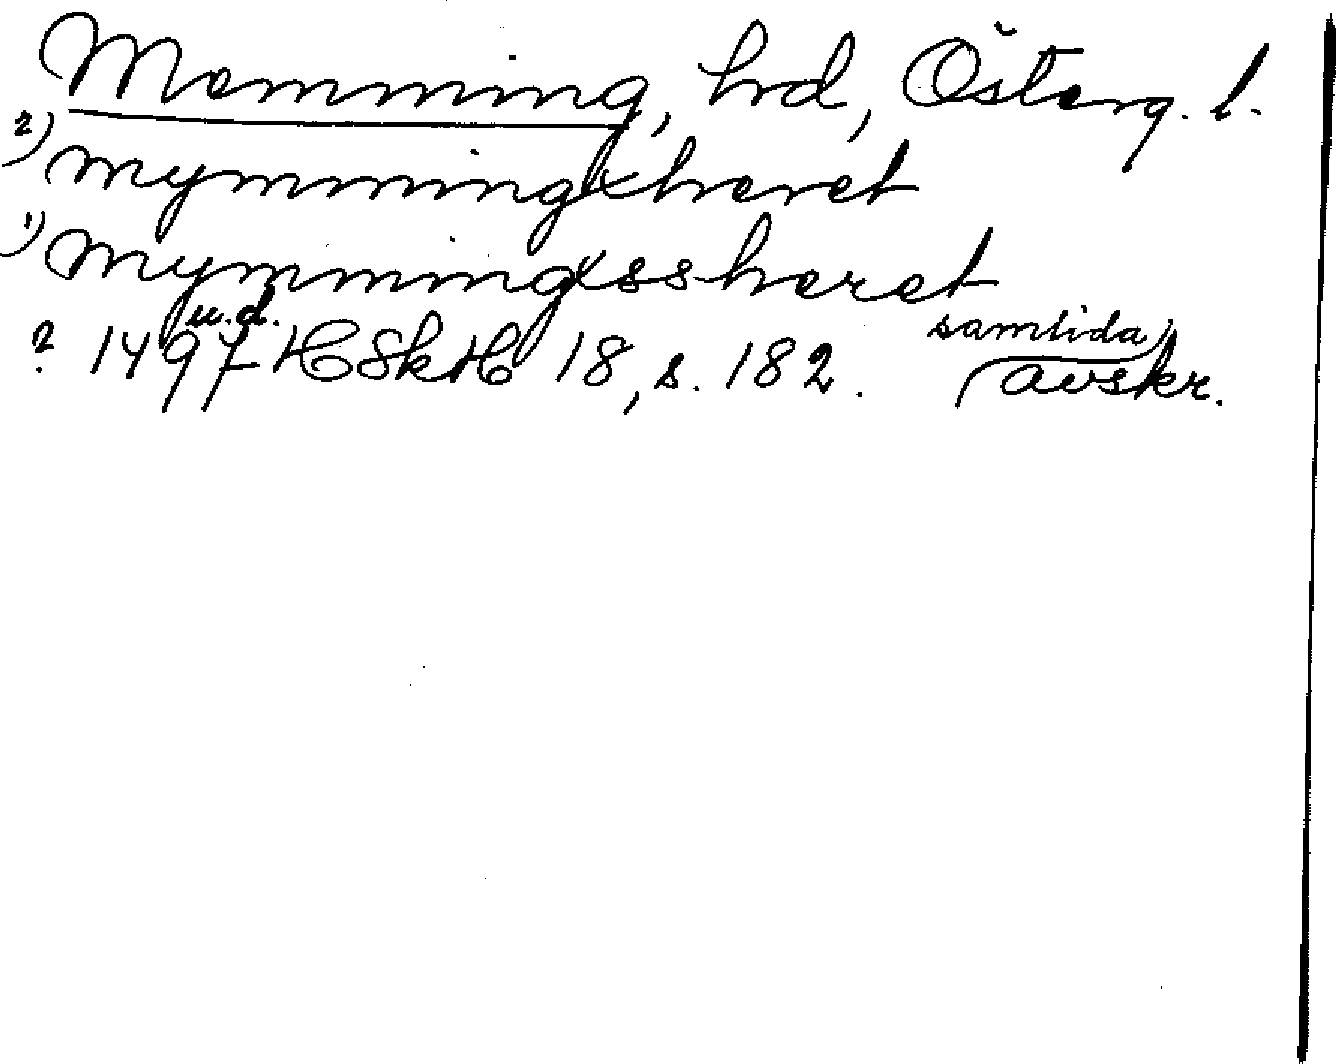 Memming, hd, Österg. l.
2) mymmingxheret
1) mymmingxssheret
? 1497 u.d. HSkH 18, s. 182. (samtida) avskr.